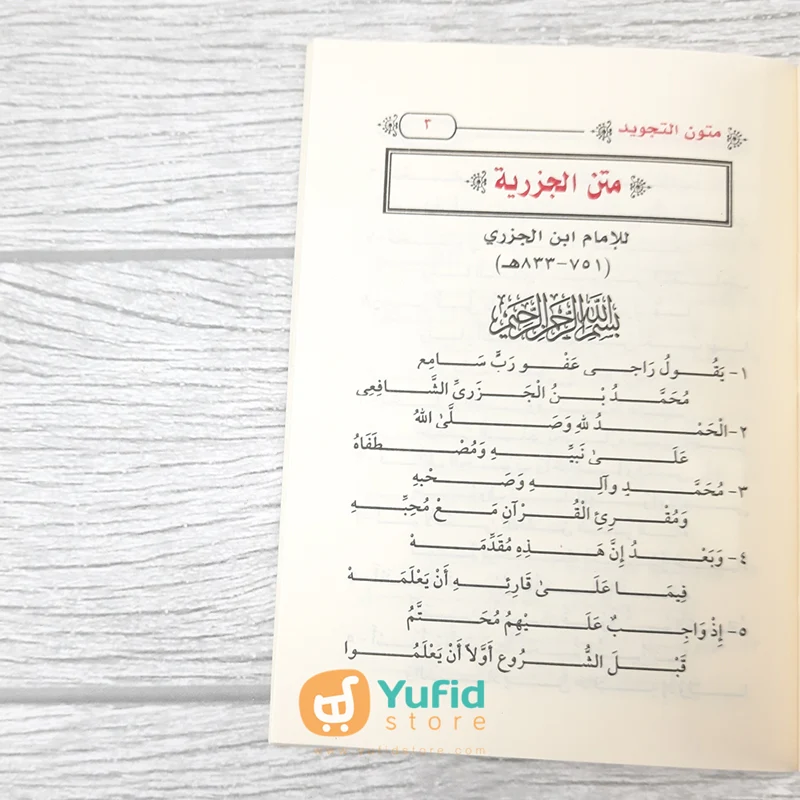 متون التجويد ٢
متن الجزرية
للإمام ابن الجزري
(٧٥١-٨٣٣هـ)
بسم الله الرحمن الرحيم
١- يَقُولُ رَاجِى عَفْوِ رَبٍّ سَامِعِ
مُحَمَّدُ بْنُ الْجَزَرِىِّ الشَّافِعِى
٢- الْحَمْدُ للهِ وَصَلَّىٰ اللهُ
عَلَىٰ نَبِيِّهِ وَمُصْطَفَاهُ
٣- مُحَمَّدٍ وآلِهِ وَصَحْبِهِ
وَمُقْرِئِ الْقُرْآنِ مَعْ مُحِبِّهِ
٤- وَبَعْدُ إِنَّ هَذِهِ مُقَدِّمَهْ
فِيمَا عَلَىٰ قَارِئِهِ أَنْ يَعْلَمَهْ
٥- إِذْ وَاجِبٌ عَلَيْهِمُ مُحَتَّمُ
قَبْلَ الشُّرُوعِ أَوَّلاً أَنْ يَعْلَمُوا
Yufid
store
www.yufidstore.com